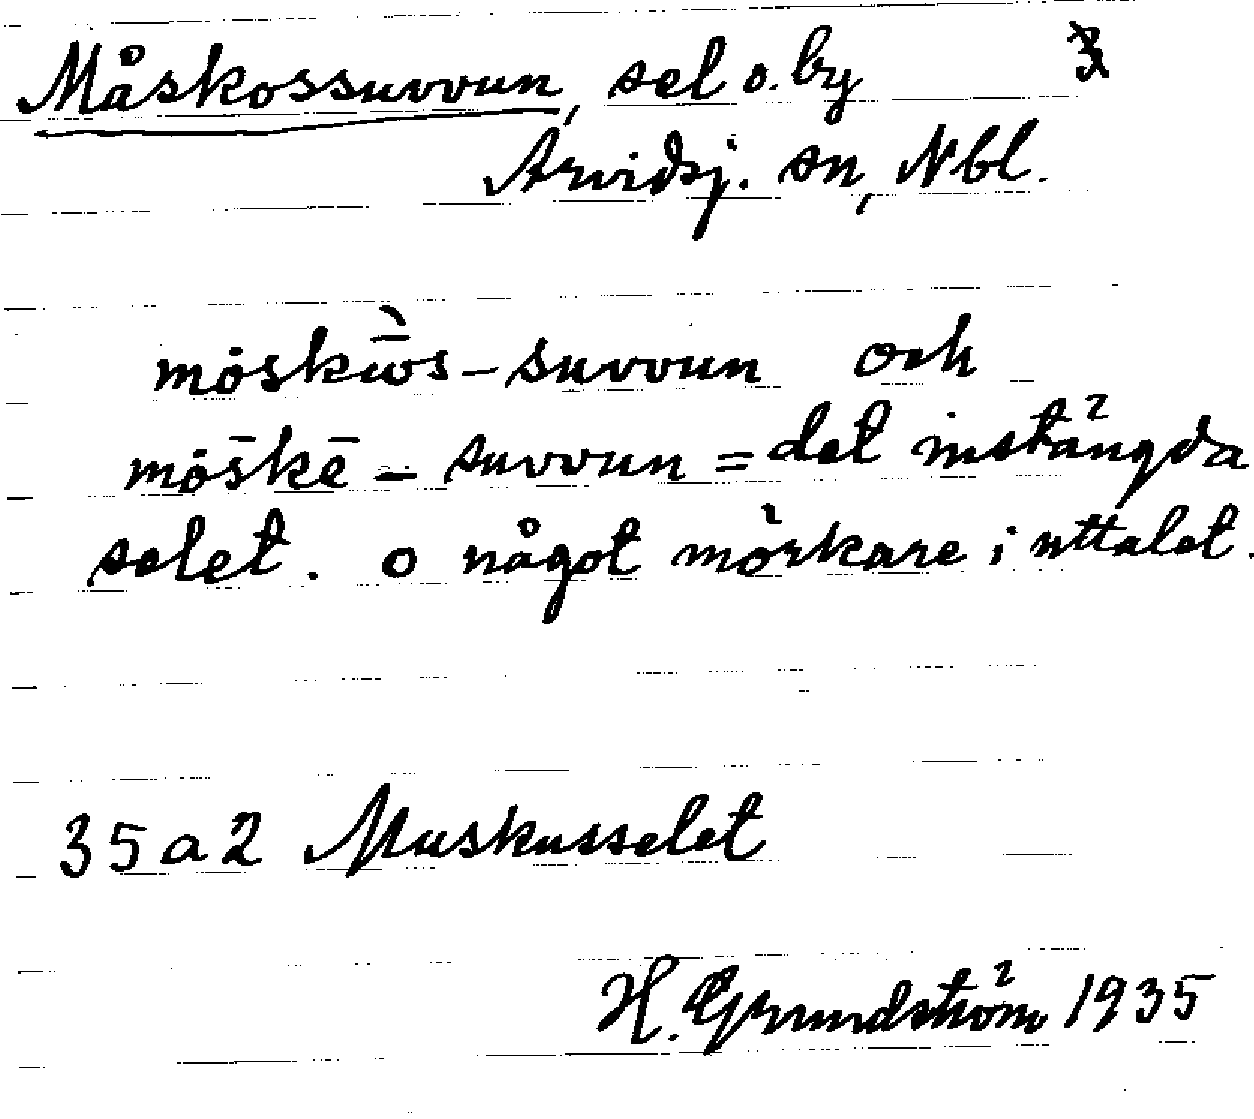 Måskossuvvun, sel o. by 3
Arvidsj. sn, Nbl.
må̇skŭ̀ōs-suvvun och
må̇̄skē - suvvun = det instängda
selet. o något mörkare i uttalet.
35 a 2 Muskusselet
H. Grundström 1935